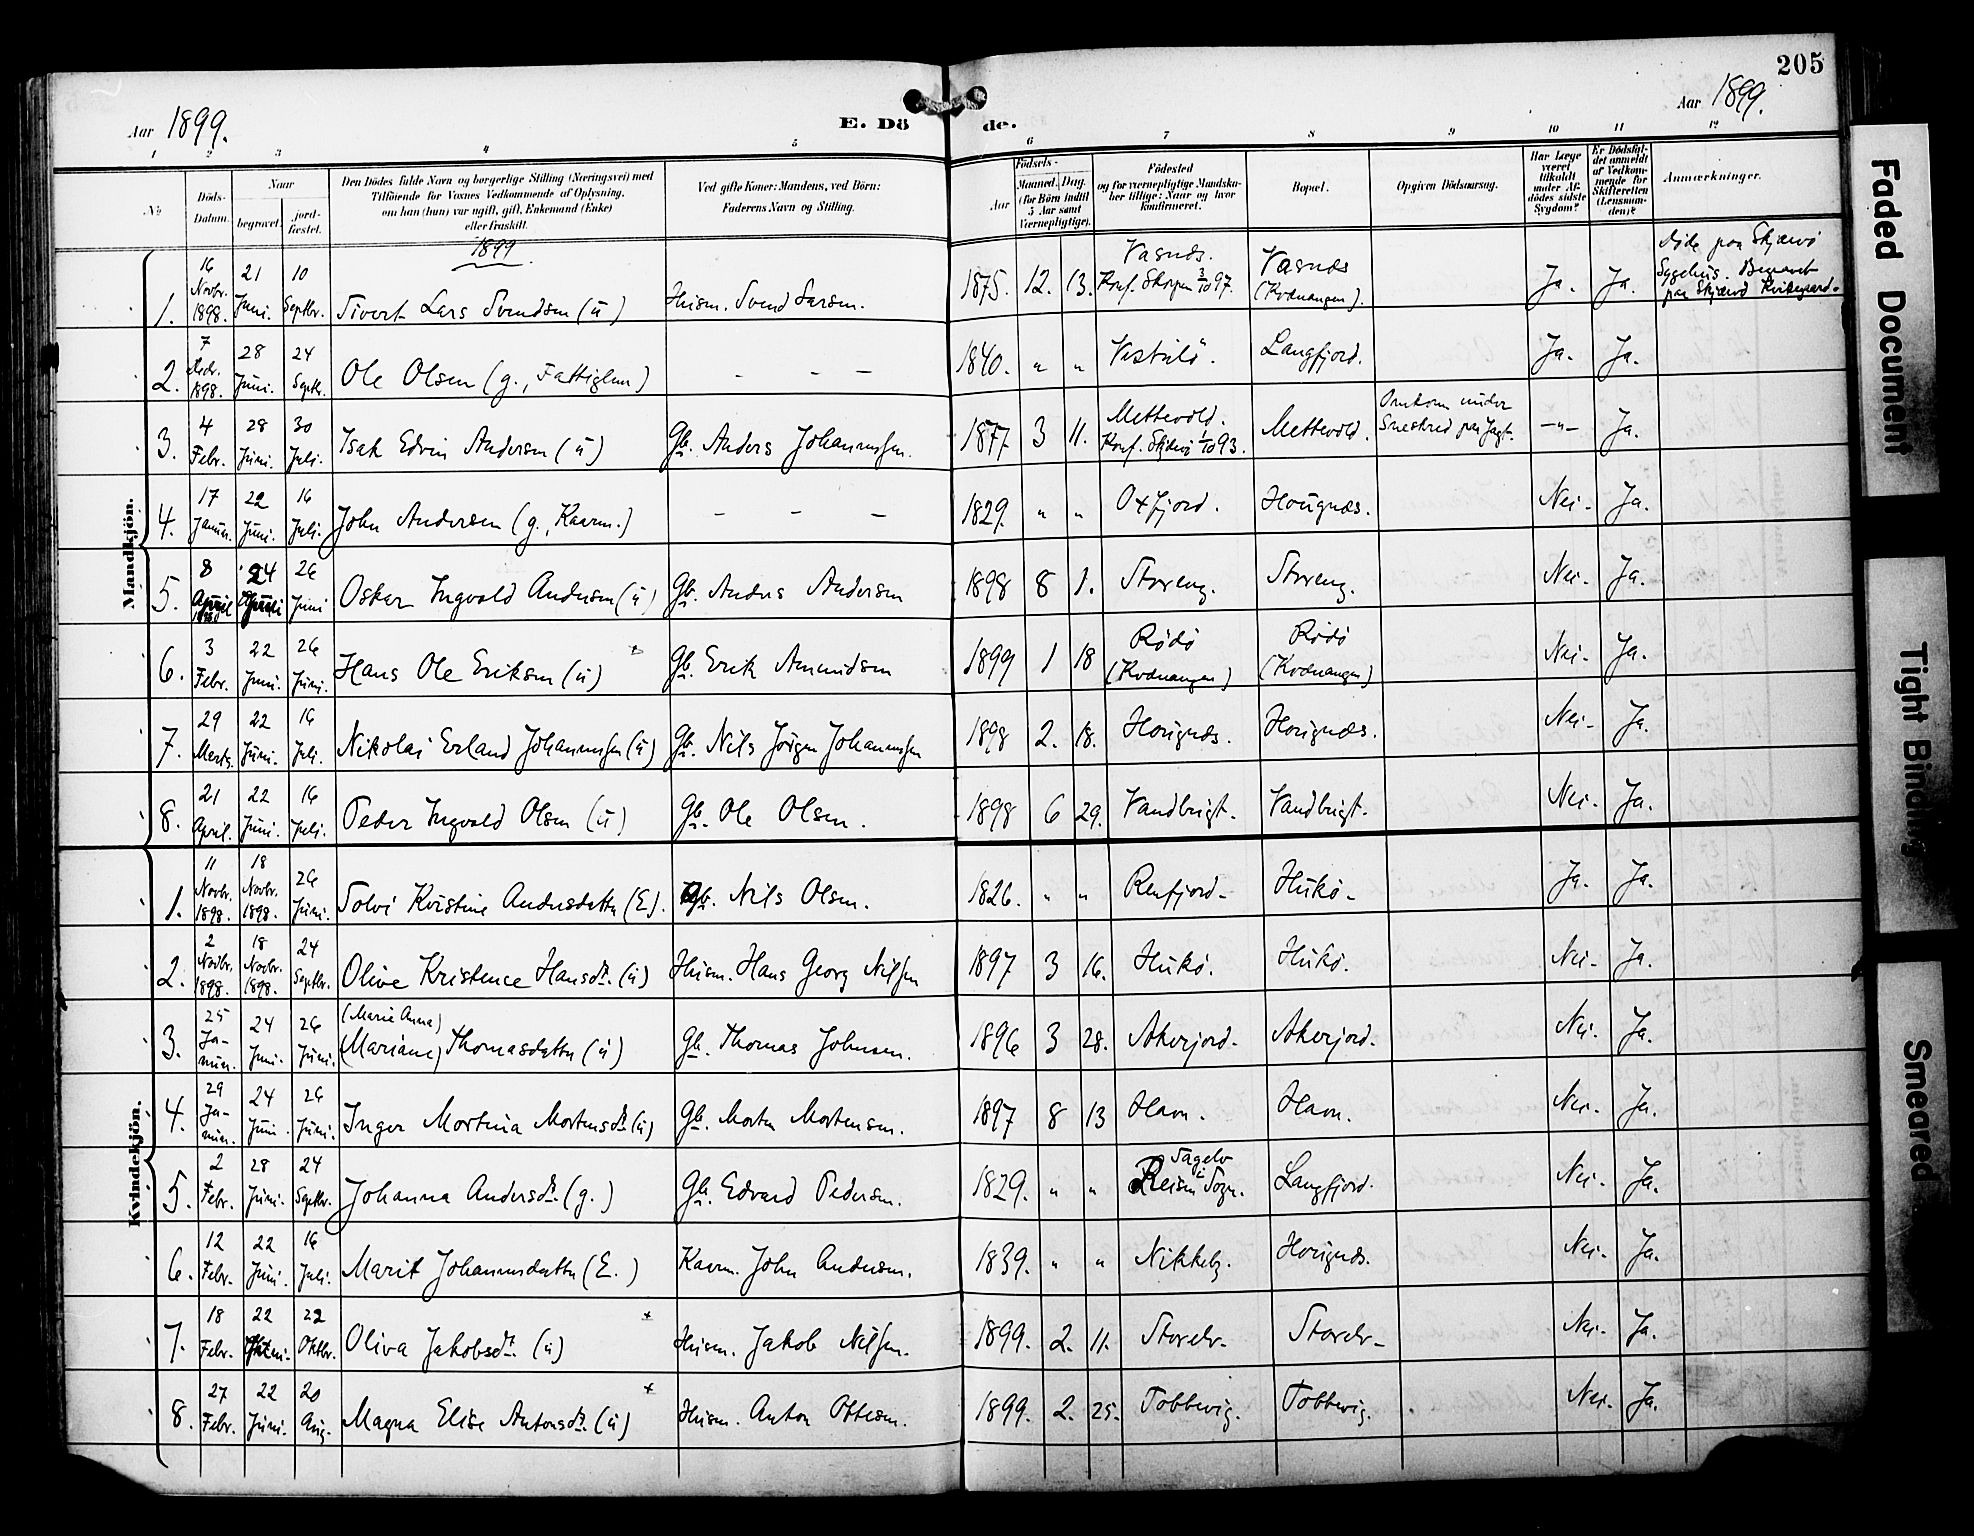 205
Aar 1899.
E. Dö
de.
Aar 1899.
1 2 3 4 5 6 7 8 9 10 11 12
№
Döds-Datum.
Naar
begravet.
jord-fæstet.
Den Dödes fulde Navn og borgerlige Stilling (Næringsvei) med Tilföiende for Voxnes Vedkommende af Oplysning, om han (hun) var ugift, gift, Enkemand (Enke) eller fraskilt.
Ved gifte Koner: Mandens, ved Börn: Faderens Navn og Stilling.
Födsels-
Aar
Maaned. Dag.
(for Börn indtil 5 Aar samt Værnepligtige).
Födested og for værnepligtige Mandskaber tillige: Naar og hvor konfirmeret.
Bopæl.
Opgiven Dödsaarsag.
Har Læge været tilkaldt under Afdödes sidste Sygdom?
Er Dödsfaldet anmeldt af Vedkommende for Skifteretten (Lensmanden)?
Anmærkninger.
Mandkjön.
1899
1. 16 Novbr. 1898. 21 Juni. 10 Septbr. Sivert Lars Svendsen (u) Husm. Svend Larsen. 1875. 12. 13. Vasnæs. Konf. Skorpen 3/10 97. Vasnæs (Kvænangen). Ja. Ja. Døde paa Skjærvø Sygehus. Begravet paa Skjærvø Kirkegaard.
2. 7 Decbr. 1898. 28 Juni. 24 Septbr. Ole Olsen (g., Fattiglem) - - - 1840. " " Langfjord. Ja. Ja.
3. 4 Febr. 28 Juni. 30 Juli. Isak Edvin Andersen (u) Gb. Anders Johannessen. 1877 3 11. Mettevold. Konf. Skjærvø 1/10 93. Mettevold. Omkom under Sneskred paa Jagt. -"- Ja.
4. 17 Januar. 22 Juni. 16 Juli. John Andersen (g., Kaarm.) - - - 1829. " " Oxfjord. Hougnæs. Nei. Ja.
5. 8 April 24 Juni 26 Juni Oskar Ingvald Andersen (u) Gb. Anders Andersen 1898 8 1. Storeng. Storeng. Nei. Ja.
6. 3 Febr. 22 Juni. 26 Juni. Hans Ole Eriksen (u) Gb. Erik Amundsen 1899 1 18 Rødø (Kvænangen) Rødø (Kvænangen) Nei. Ja.
7. 29 Marts. 22 Juni. 16 Juli. Nikolai Erland Johannessen (u) Gb. Nils Jørgen Johannessen 1898 2. 18. Hougnæs. Hougnæs. Nei. Ja.
8. 21 April. 22 Juni. 16 Juli. Peder Ingvald Olsen (u) Gb. Ole Olsen. 1898 6 29. Vandbugt. Vandbugt. Nei. Ja.
Kvindekjön.
1. 11 Novbr. 1898. 18 Novbr. 1898. 26 Juni. Solvi Kristine Andersdatter (E). Gb. Nils Olsen. 1826. " " Renfjord. Hukø. Ja. Ja.
2. 2 Novbr. 1898. 18 Novbr. 1898. 24 Septbr. Olive Kristence Hansdt. (u) Husm. Hans Georg Nilssen 1897 3 16. Hukø. Hukø. Nei. Ja.
3. 25 Januar. 24 Juni. 26 Juni. (Marie Anna) (Mariane) Thomasdatter (u) Gb. Thomas Johnsen. 1896 3 28. Akerjord. Akerjord. Nei. Ja.
4. 29 Januar. 24 Juni. 26 Juni. Inger Mortina Mortensdt. (u) Gb. Morten Mortensen. 1897 8 13 Havn. Havn. Nei. Ja.
5. 2 Febr. 28 Juni. 24 Septbr. Johanna Andersdt. (g.) Gb. Edvard Pedersen. 1829. " " Tagelv i Reisen Sogn. Langfjord. Nei. Ja.
6. 12 Febr. 22 Juni. 16 Juli. Marit Johannesdatter (E.) Kaarm. John Andersen. 1839. " " Nikkeby. Hougnæs. Nei. Ja.
7. 18 Febr. 22 Juni. 22 Oktbr. Oliva Jakobsdt. (u) Husm. Jakob Nilssen. 1899. 2. 11. Storelv. Storelv. Nei. Ja.
8. 27 Febr. 22 Juni. 20 Aug. Magna Elise Antonsdt. (u) Husm. Anton Ottesen. 1899. 2. 25. Tobbevig. Tobbevig. Nei. Ja.
Faded Document
Tight Binding
Smeared